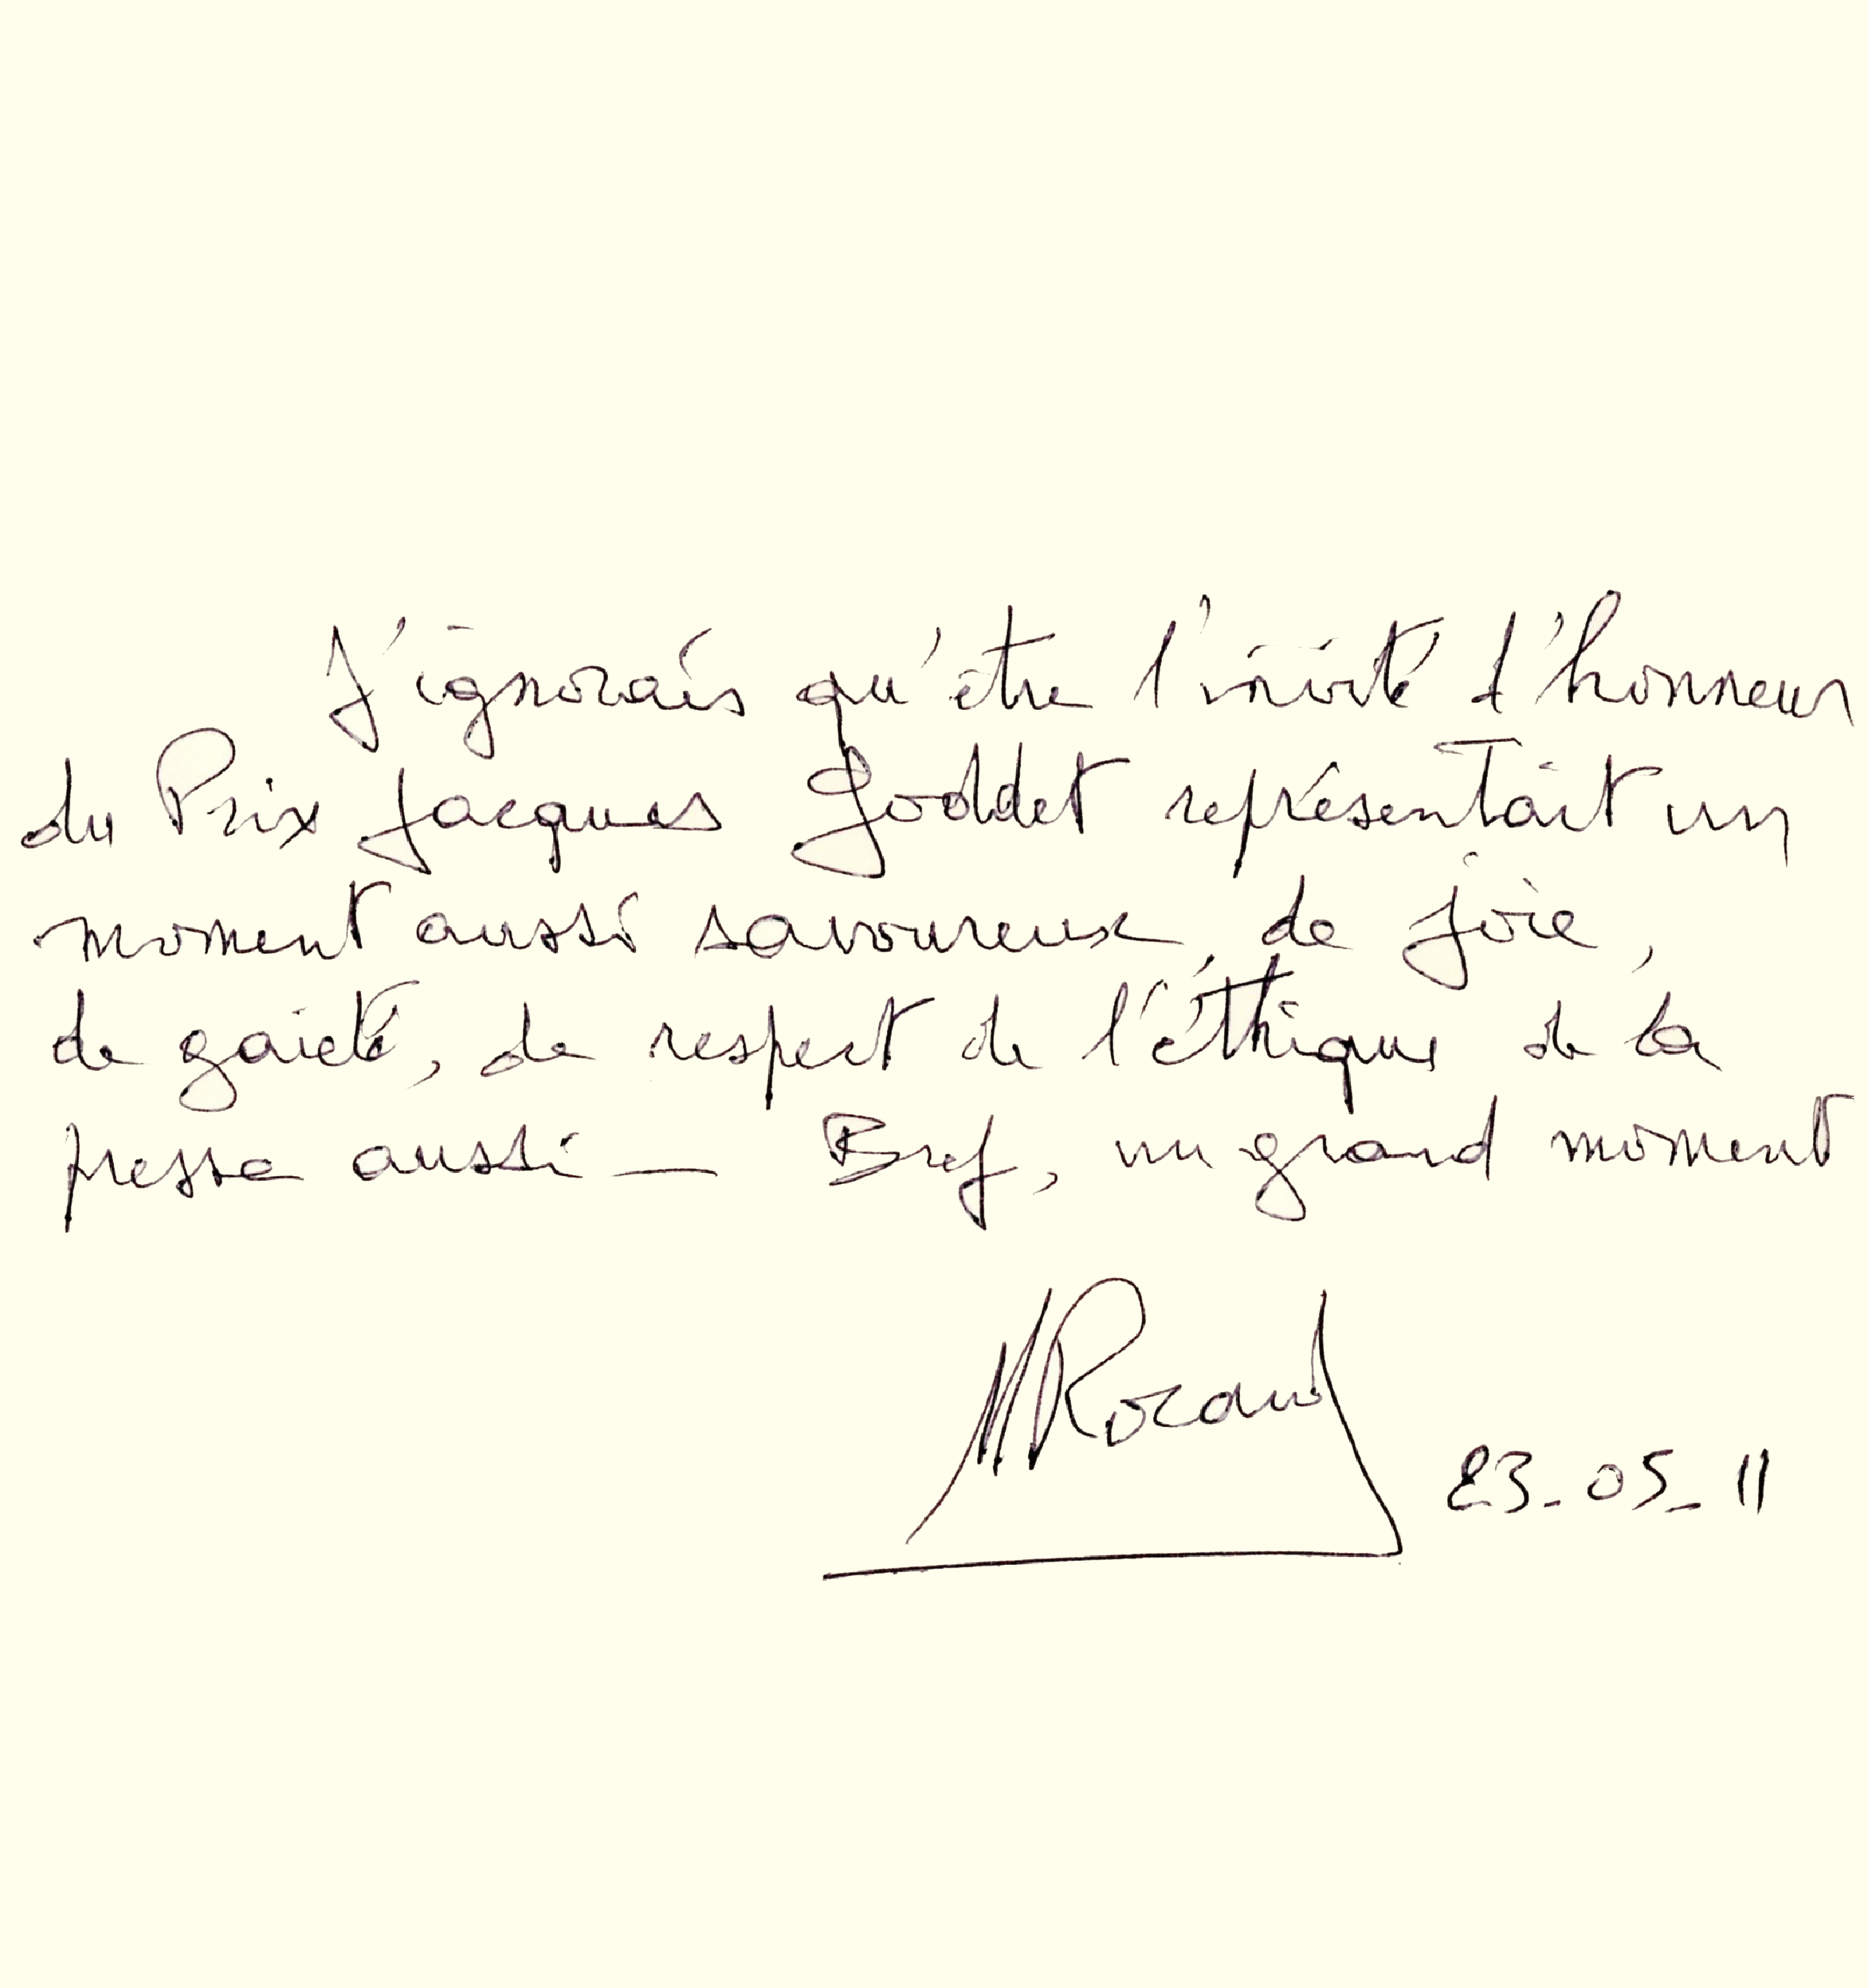 J'ignorais qu'être l'invité d'honneur
du Prix Jacques Goddet représentait un
moment aussi savoureux de joie,
de gaieté, de respect de l'éthique de la
presse aussi — Bref, un grand moment
MRocard
23-05-11